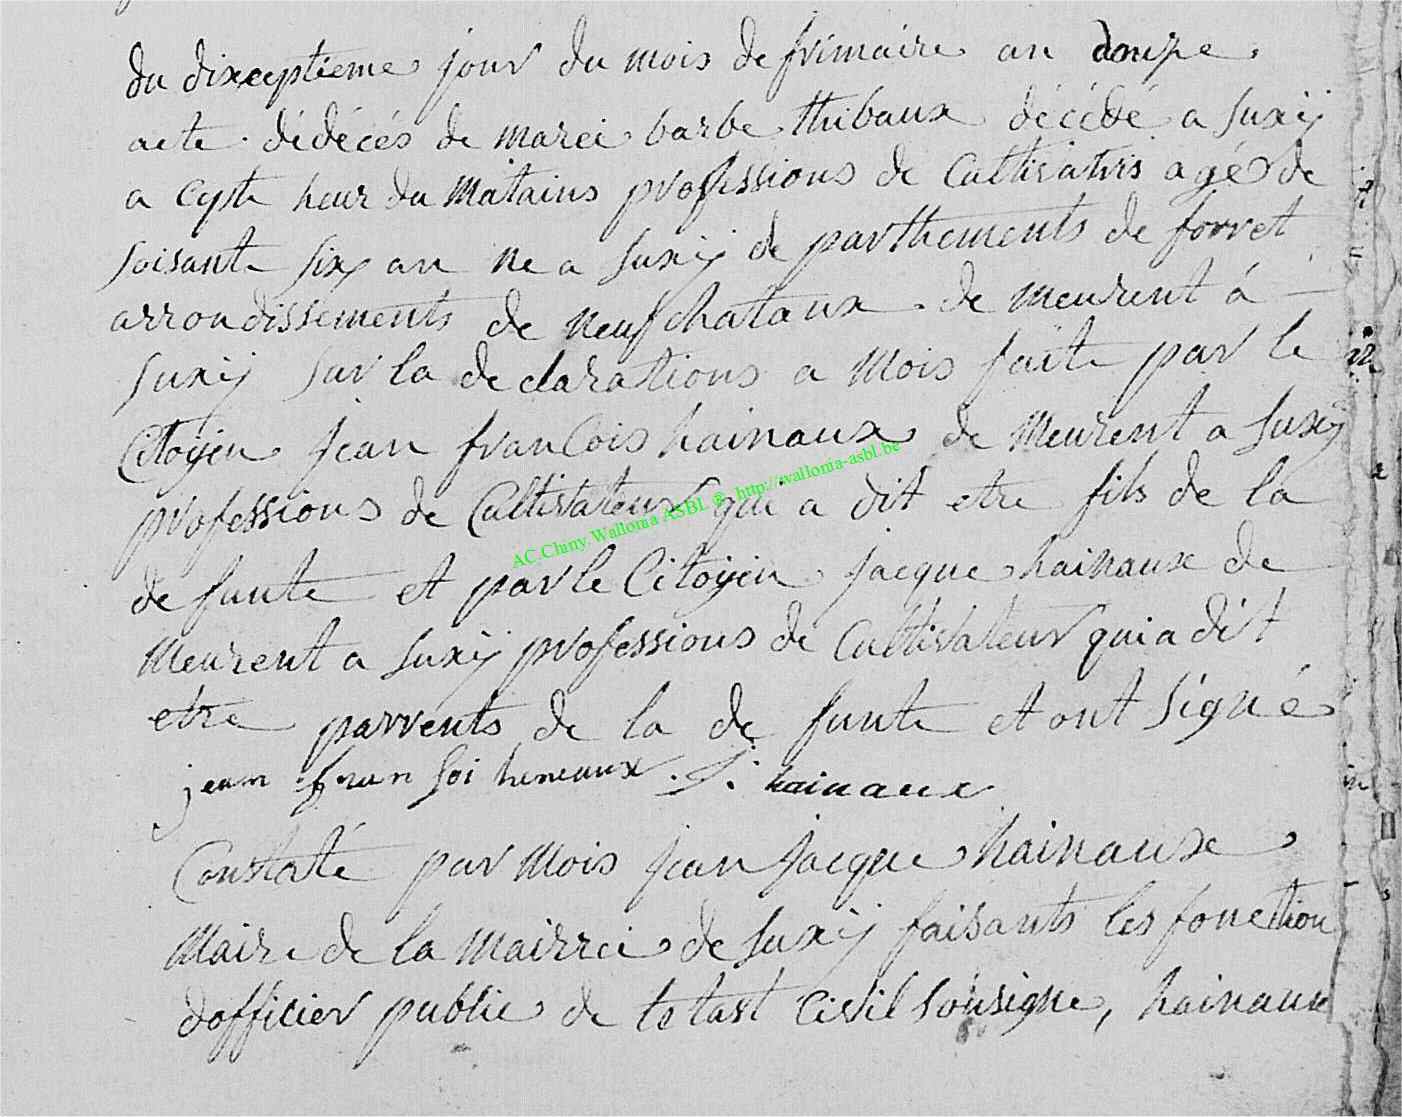 du dixceptieme jour du mois de frimaire an douze
acte dédécés de mareie barbe thibaux décédé a Suxÿ
a cyste heur du Matains professions de Cultivatris agér de
soisante six an ne a Suxÿ de parthements de forret
arrondissements de neufchataux de meurent á
Suxÿ sur la declarastions a Mois faite par le
Citoyen jean francois hainaux de Meurent a Suxÿ
professions de Cultivateur qui a dit etre fils de la
AC.Chiny.Wallonia ASBL ® http://wallonia-asbl.be
de funte et par le Citoyen jacque hainaux de
Meurent a Suxÿ professions de Cultivateur qui a dit
etre parvents de la de funte et ont signé
jean fran soi heneaux. J: hainaux
Constaté par Mois jean jacque hainaux
Maire de la mairrei de Suxÿ faisants les fonction
dofficier public de letast Civil sousigne, hainaux